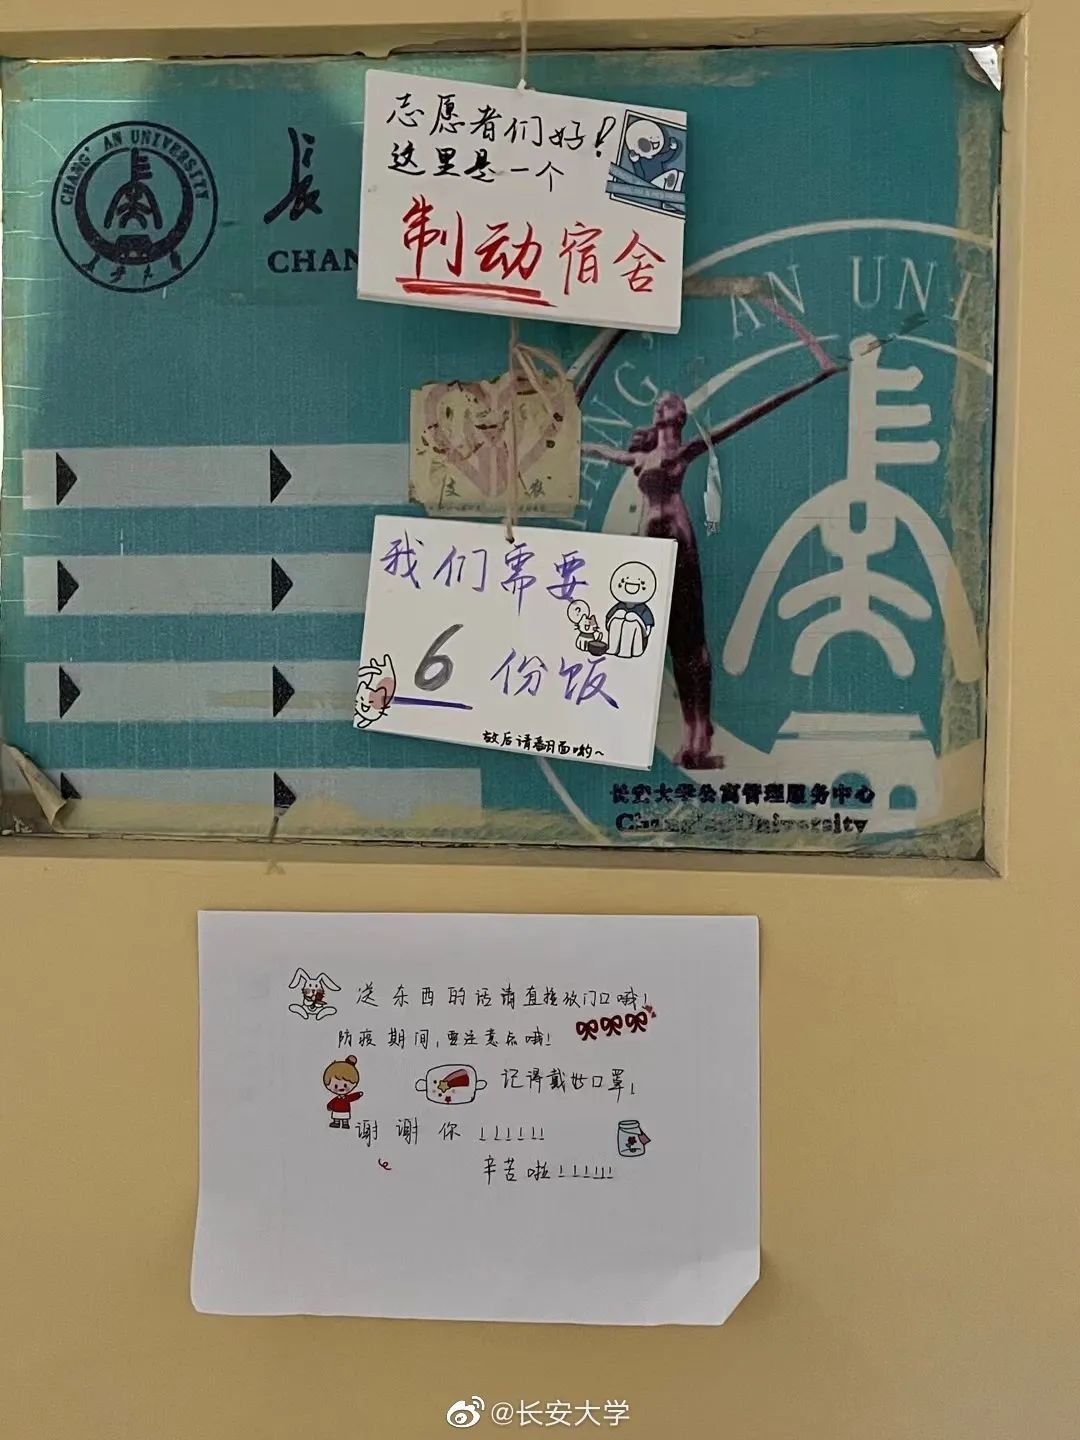 CHANG' AN UNIVERSITY
長
CHAN
志愿者们好!
这里是一个
制动宿舍
AN UNI
我们需要
6份饭
放后请翻面哟~
长安大学公寓管理服务中心
Chang'an University
送东西的话请直接放门口哦!
防疫期间,要注意点哦!
记得戴好口罩!
谢谢你!!!!!!
辛苦啦!!!!!!
@长安大学